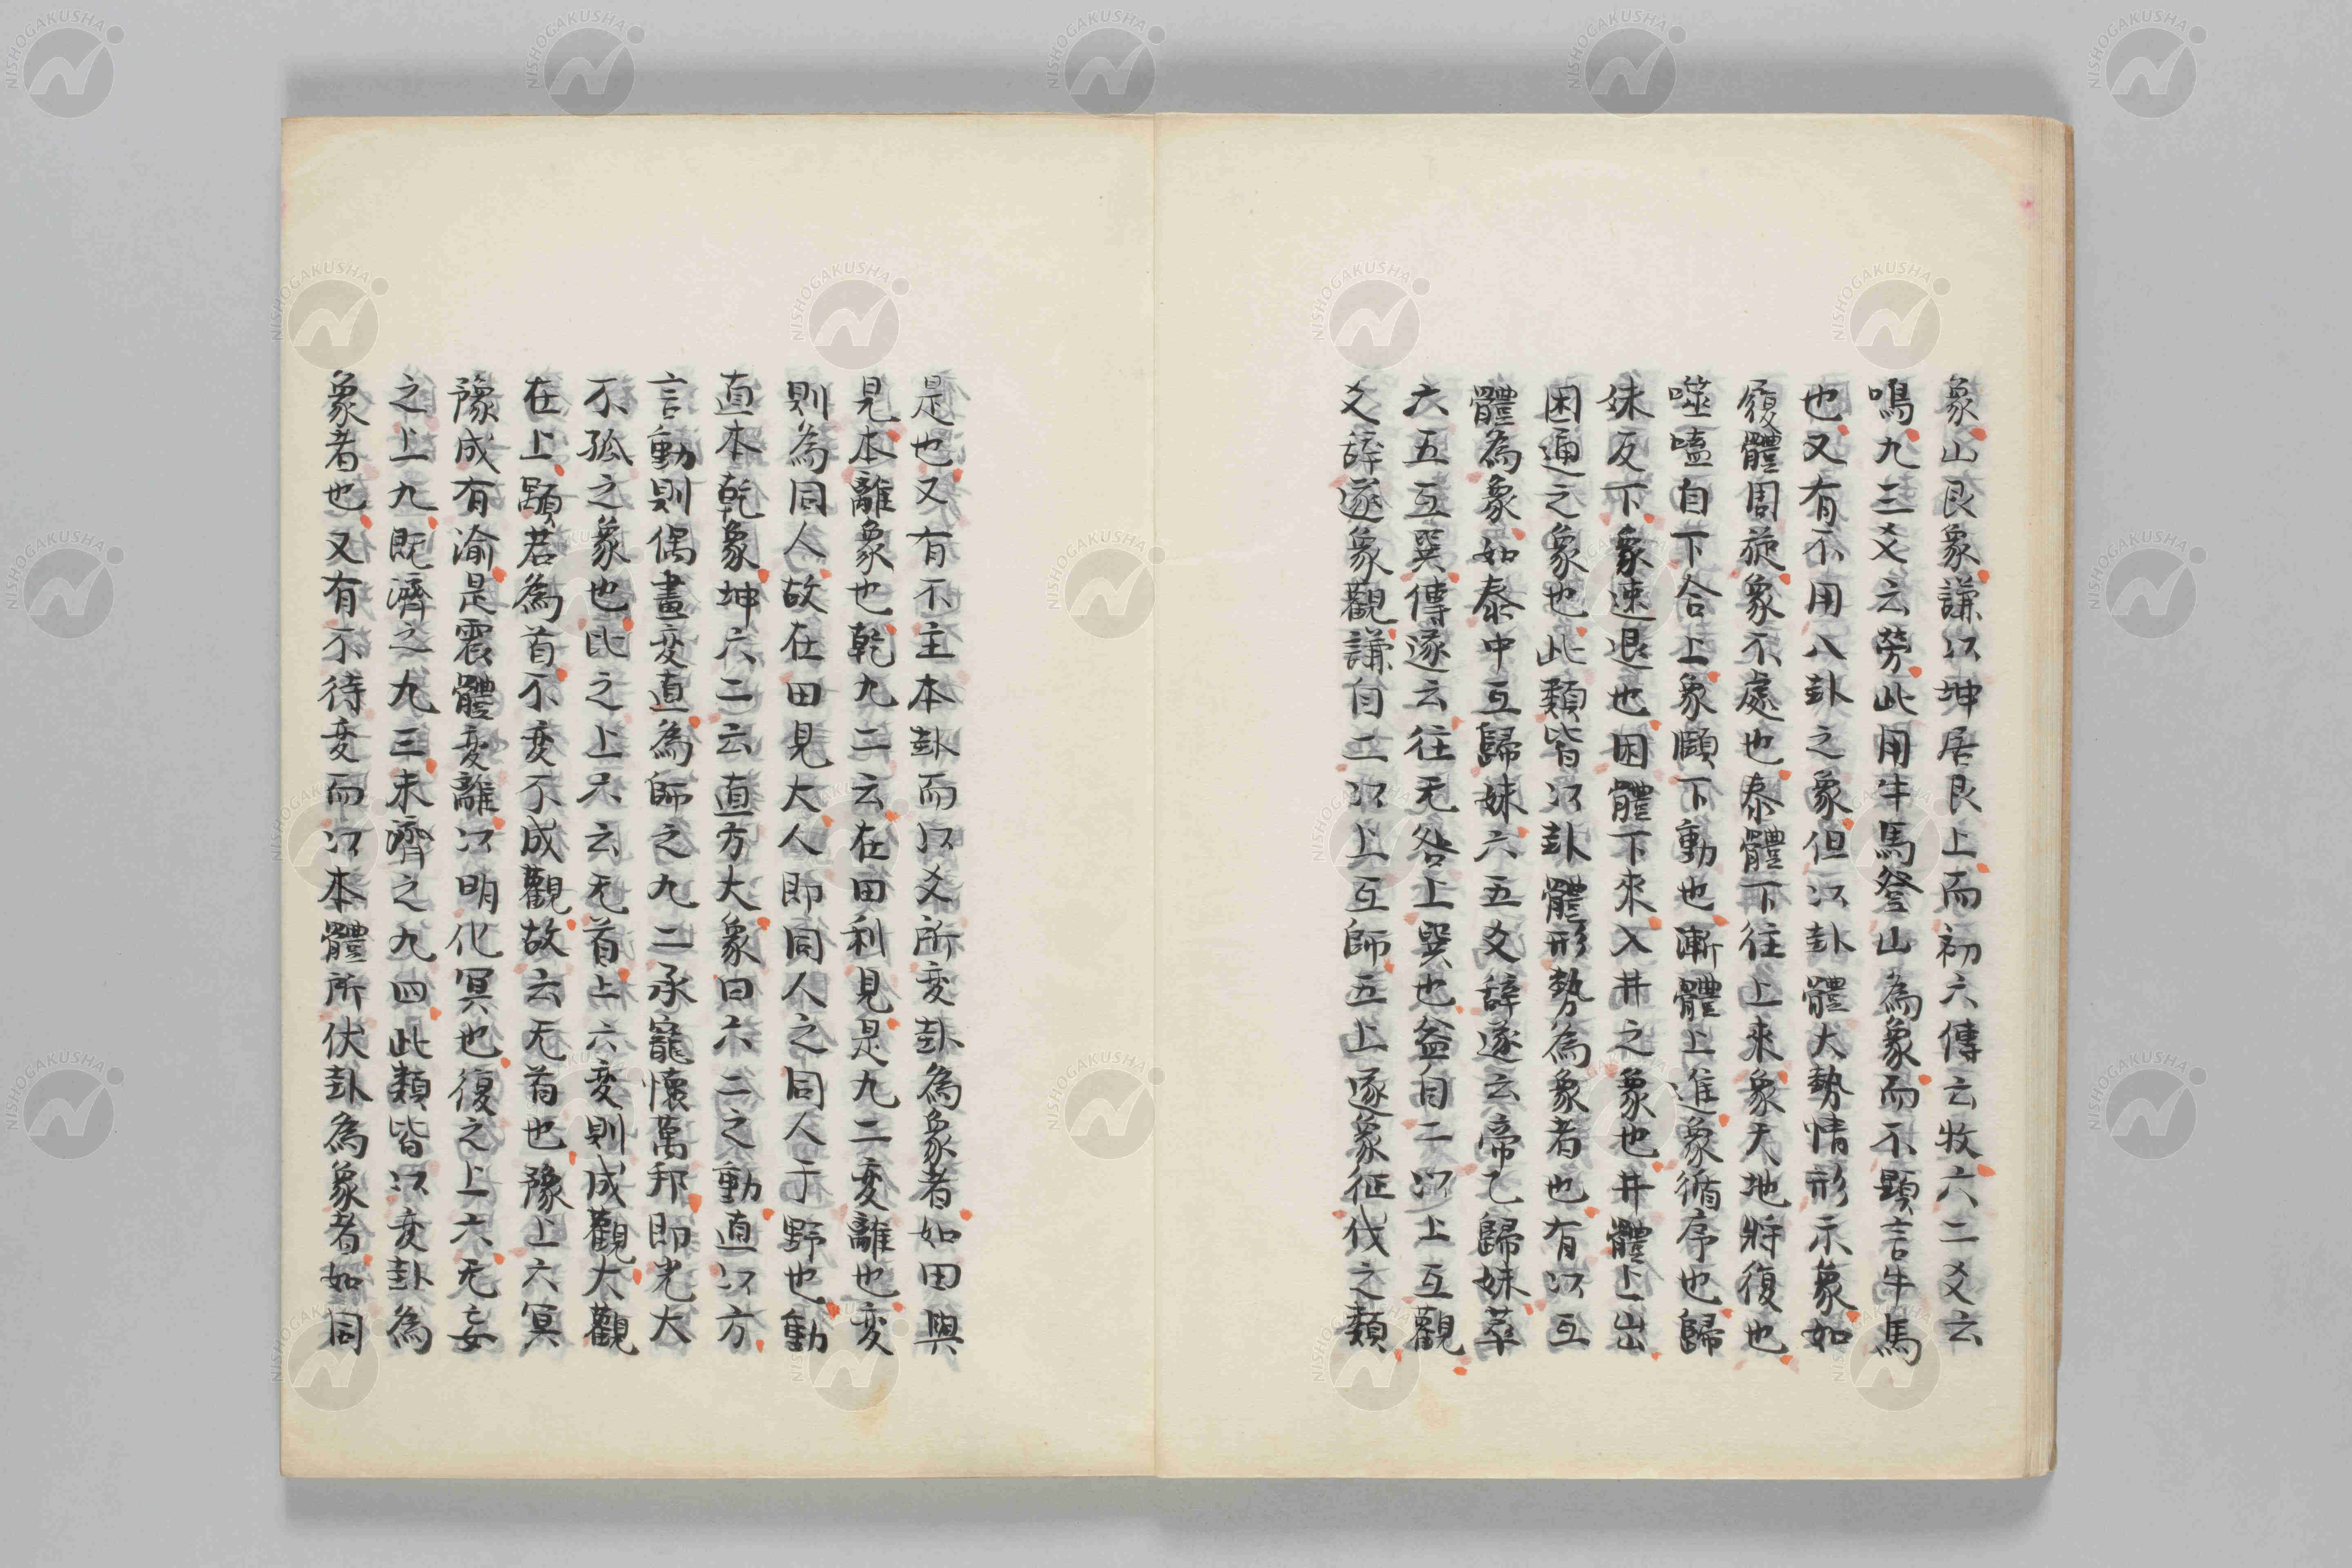 象山艮象謙以坤居艮上而初六傳云牧六二爻云
鳴九三爻云勞此用牛馬登山為象而不顕言牛馬
也又有不用八卦之象但以卦體大勢情形示象如
復體周旋象不處也泰體下往上來象天地將復也
噬嗑自下合上象頤下動也漸體上進象循序也歸
妹反下象速退也困體下來入井之象也井體上出
困通之象也此類皆以卦體形勢為象者也有以互
體為象如泰中互歸妹六五爻辭遂云帝乙歸妹萃
六五互巽傳遂云往无咎上巽也益自二以上互觀
爻辭遂象觀謙自二以上互師五上遂象征伐之類
是也又有不主本卦而以爻所変卦為象者如田與
見本離象也乾九二云在田利見是九二変離也変
則為同人故在田見大人即同人之同人于野也動
直本乾象坤六二云直方大象曰六二之動直以方
言動則偶畫変直為師之九二承寵懷萬邦即光大
不孤之象也比之上六云无首上六変則成觀大觀
在上顒若為首不変不成觀故云无首也豫上六冥
豫成有渝是震體変離以明化冥也復之上六无妄
之上九既濟之九三未濟之九四此類皆以変卦為
象者也又有不待変而以本體所伏卦為象者如同
NISHOGAKUSHA